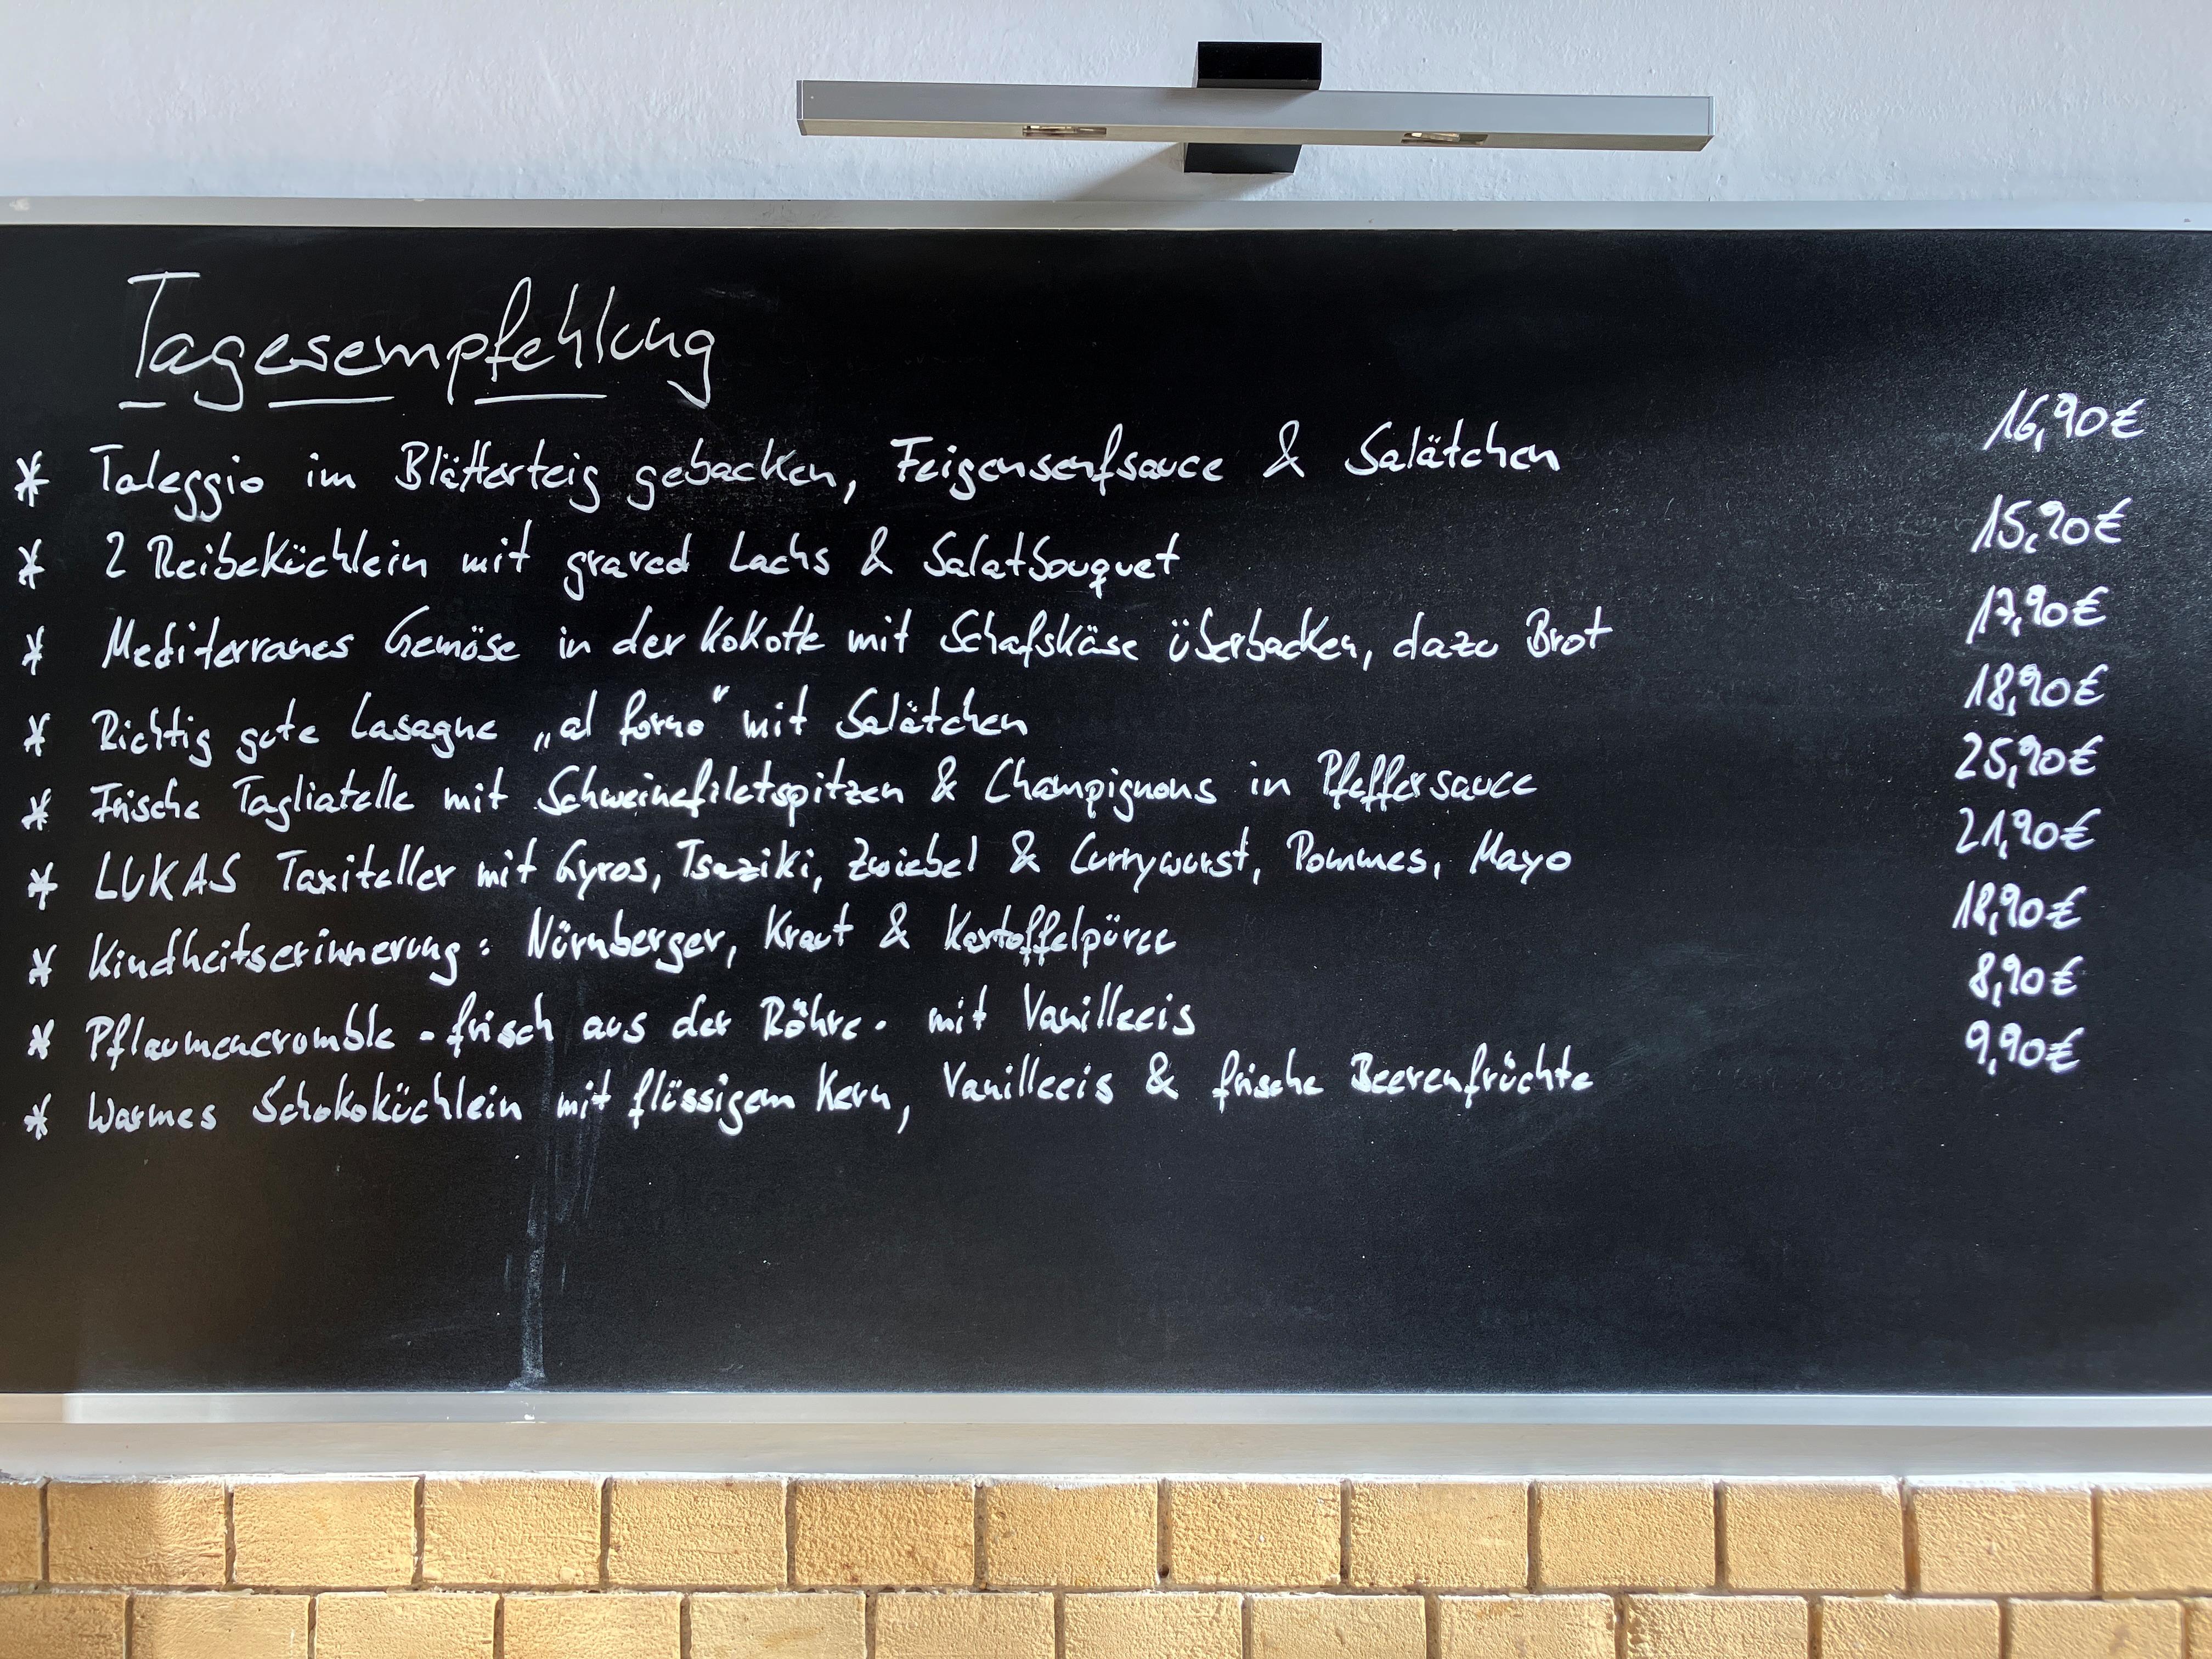 Tagesempfehlung
* Taleggio im Blätterteig gebacken, Feigensenfsauce & Salätchen 16,90€
* 2 Reibeküchlein mit graved Lachs & Salatbouquet 15,90€
* Mediterranes Gemüse in der Kokotte mit Schafskäse überbacken, dazu Brot 17,90€
* Richtig gute Lasagne „al forno" mit Salätchen 18,90€
* Frische Tagliatelle mit Schweinefiletspitzen & Champignons in Pfeffersauce 25,90€
* LUKAS Taxiteller mit Gyros, Tsaziki, Zwiebel & Currywurst, Pommes, Mayo 21,90€
* Kindheitserinnerung: Nürnberger, Kraut & Kartoffelpüree 18,90€
* Pflaumencrumble - frisch aus der Röhre - mit Vanilleeis 8,90€
* Warmes Schokoküchlein mit flüssigem Kern, Vanilleeis & frische Beerenfrüchte 9,90€